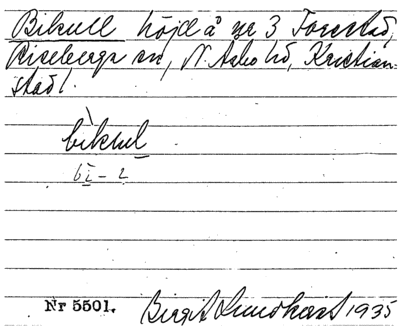 Bikull höjd å nr 3 Forestad,
Riseberga sn, N. Åsbo hd, Kristian-
stad l.
bìkul
bi - l
Nr 5501. Birgit Lundkvist 1935